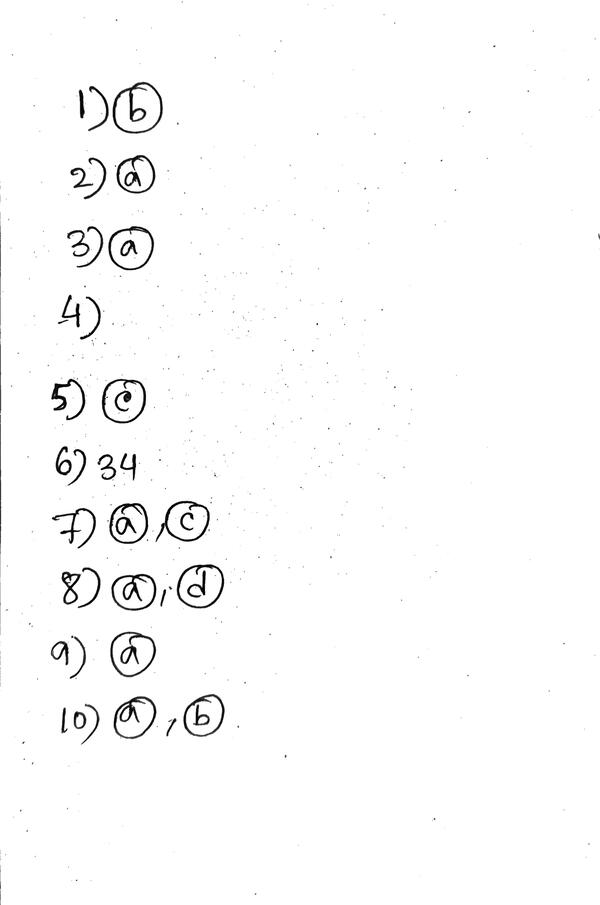 1) b
2) a
3) a
4)
5) c
6) 34
7) a, c
8) a, d
9) a
10) a, b